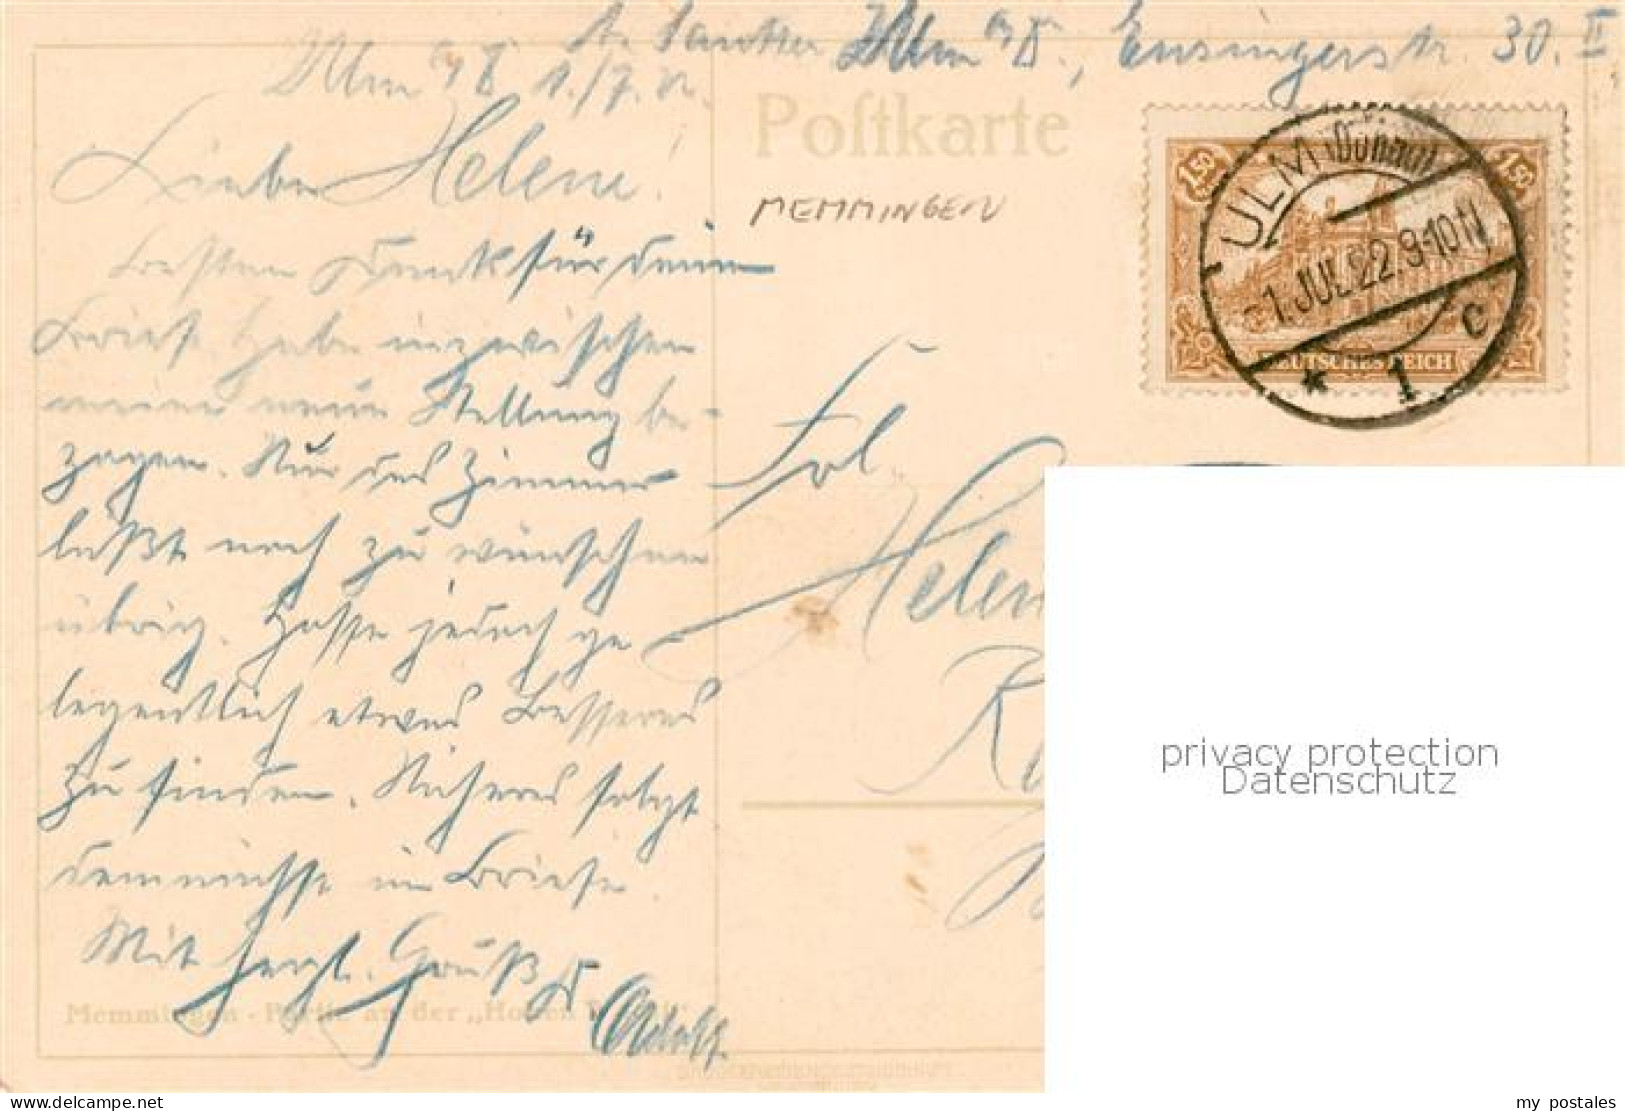 Ulm a/D, Ensingerstr. 30. II
Ulm a/D 1./7. 22.
Postkarte
Liebe Helene!
MEMMINGEN
Besten Dank für deinen
Brief. Habe inzwischen
meine neue Stellung be-
zogen. Nur das Zimmer
läßt noch zu wünschen
übrig. Hoffe jedoch ge-
legentlich etwas Besseres
zu finden. Näheres folgt
demnächst im Briefe.
Mit herzl. Gruß
D Adolf
Frl.
Helen
ULM (Donau)
-1. JUL 22. 9-10 N
* 1 c
1.50 1.50
DEUTSCHES REICH
privacy protection
Datenschutz
Memmingen - Partie an der „Hohen
my postales